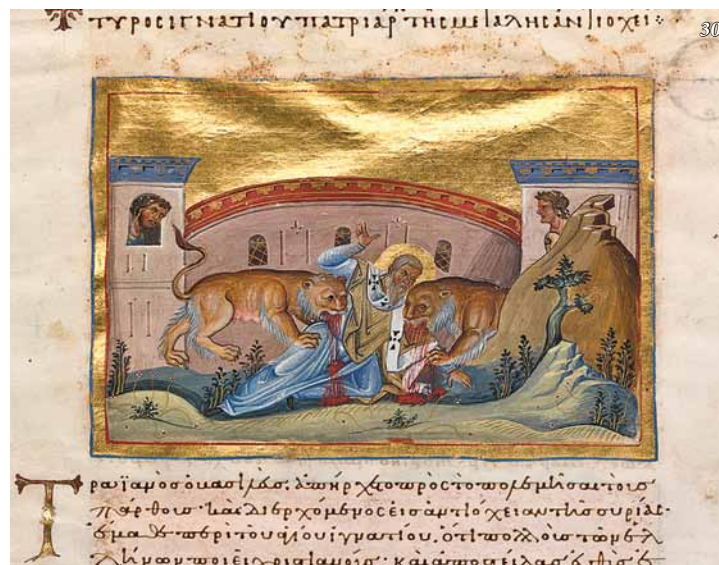 ΤΥΡΟΣ ΙΓΝΑΤΙΟΥ ΠΑΤΡΙΑΡ ΤΗΣ ΜΕΓΑΛΗΣ ΑΝΤΙΟΧΕΙ
30
Τραϊανὸς ὁ βασιλεὺς, ἀπήρχετο πρὸς τὸ πολεμῆσαι τοῖς
πάρθοις· καὶ διερχόμενος εἰς ἀντιόχειαν τῆς συρίας
ἔμαθε περὶ τοῦ ἁγίου ἰγνατίου, ὅτι πολλοὺς τῶν ἑλ
λήνων ποιεῖ χριστιανούς· καὶ ἀποστείλας